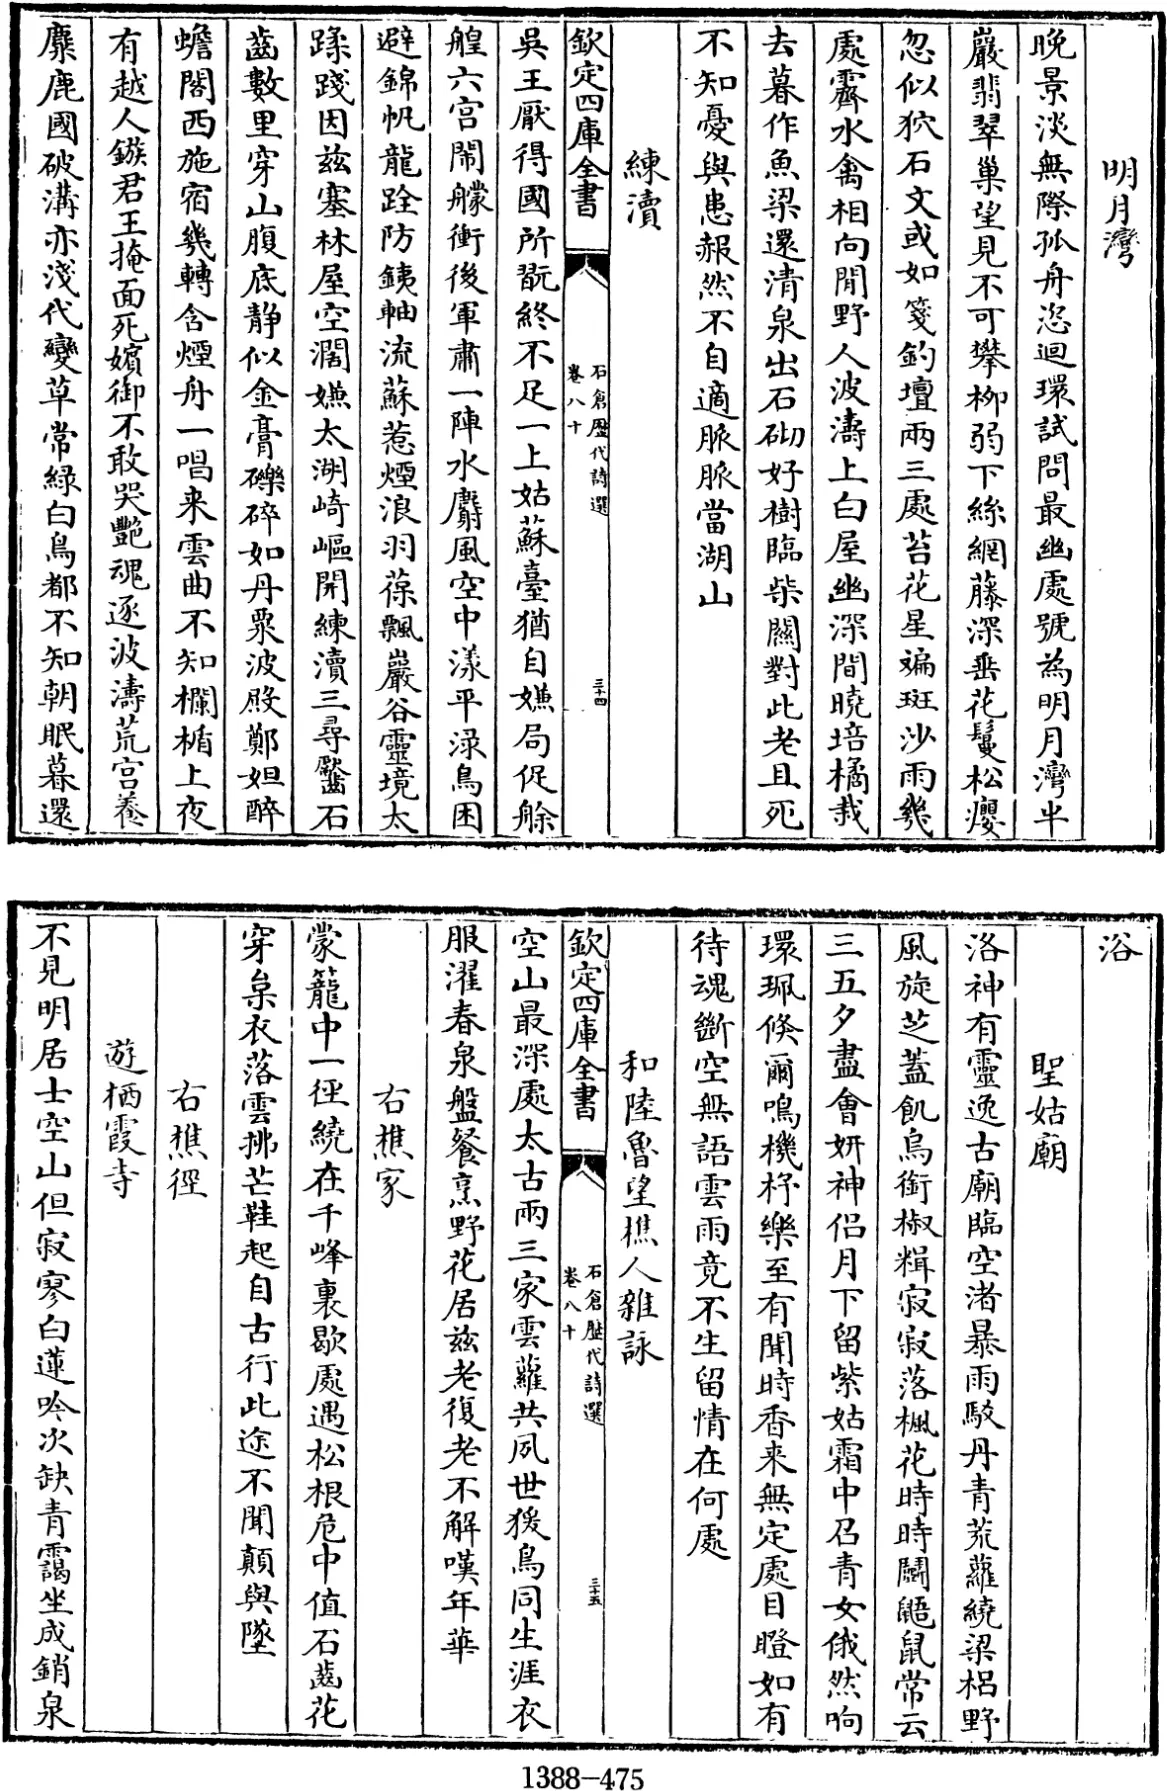 明月灣
晚景淡無際孤舟恣迴環試問最幽處號為明月灣半
巖翡翠巢望見不可攀柳弱下絲網藤深垂花鬘松癭
忽似狖石文或如䖘釣壇兩三處苔花星斒斑沙雨幾
處霽水禽相向閒野人波濤上白屋幽深間曉培橘栽
去暮作魚梁還清泉出石砌好樹臨柴關對此老且死
不知憂與患赧然不自適脈脈當湖山
練瀆
吳王厭得國所翫終不足一上姑蘇臺猶自嫌局促艅
艎六宮鬧艨衝後軍肅一陣水麝風空中漾平渌鳥困
避錦帆龍跧防鐵軸流蘇惹煙浪羽葆飄巖谷靈境太
蹂踐因兹塞林屋空濶嫌太湖崎嶇開練瀆三尋齾石
齒數里穿山腹底静似金膏礫碎如丹粟波殿鄭妲醉
蟾閣西施宿幾轉含煙舟一唱来雲曲不知欄楯上夜
有越人鏃君王掩面死嬪御不敢哭艷魂逐波濤荒宫養
麋鹿國破溝亦淺代變草常緑白鳥都不知朝眠暮還
欽定四庫全書
石倉歷代詩選
卷八十
三十四
浴
聖姑廟
洛神有靈逸古廟臨空渚暴雨駮丹青荒蘿繞梁梠野
風旋芝蓋飢烏銜椒糈寂寂落楓花時時鬬鼯鼠常云
三五夕盡會妍神侣月下留紫姑霜中召青女俄然响
環珮倐爾鳴機杼樂至有聞時香来無定處目瞪如有
待魂斷空無語雲雨竟不生留情在何處
和陸魯望樵人雜詠
空山最深處太古兩三家雲蘿共夙世猨鳥同生涯衣
服濯春泉盤餐烹野花居兹老復老不解嘆年華
右樵家
蒙籠中一徑繞在千峰裏歇處遇松根危中值石齒花
穿枲衣落雲拂芒鞋起自古行此途不聞顛與墜
右樵徑
遊栖霞寺
不見明居士空山但寂寥白蓮吟次缺青靄坐成銷泉
欽定四庫全書
石倉歷代詩選
卷八十
三十五
1388-475